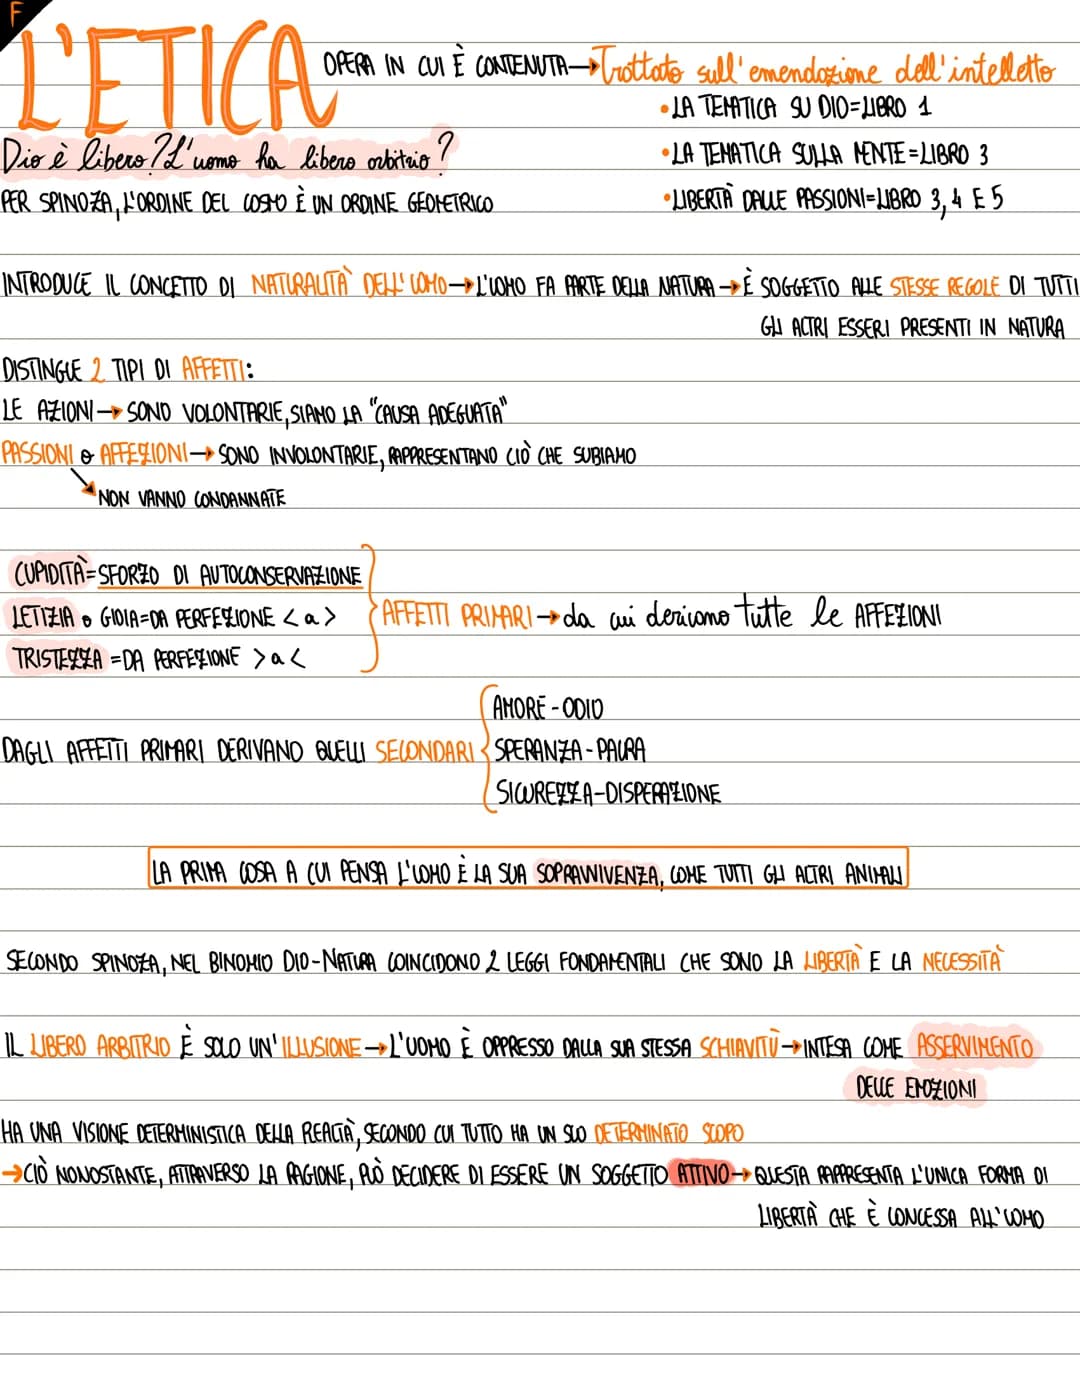 F
L'ETICA
OPERA IN CUI È CONTENUTA→Trattato sull'emendazione dell'intelletto
•LA TEMATICA SU DIO=LIBRO 1
Dio è libero? L'uomo ha libero arbitrio?
•LA TEMATICA SULLA MENTE=LIBRO 3
PER SPINOZA, L'ORDINE DEL COSMO È UN ORDINE GEOMETRICO
•LIBERTÀ DALLE PASSIONI=LIBRO 3, 4 E 5
INTRODUCE IL CONCETTO DI NATURALITÀ DELL'UOMO→L'UOMO FA PARTE DELLA NATURA→È SOGGETTO ALLE STESSE REGOLE DI TUTTI
GLI ALTRI ESSERI PRESENTI IN NATURA
DISTINGUE 2 TIPI DI AFFETTI:
LE AZIONI→SONO VOLONTARIE, SIAMO LA "CAUSA ADEGUATA"
PASSIONI o AFFEZIONI→SONO INVOLONTARIE, RAPPRESENTANO CIÒ CHE SUBIAMO
NON VANNO CONDANNATE
CUPIDITÀ=SFORZO DI AUTOCONSERVAZIONE
LETIZIA o GIOIA=DA PERFEZIONE < a >
AFFETTI PRIMARI→da cui derivano tutte le AFFEZIONI
TRISTEZZA=DA PERFEZIONE > a <
DAGLI AFFETTI PRIMARI DERIVANO QUELLI SECONDARI
AMORE-ODIO
SPERANZA-PAURA
SICUREZZA-DISPERAZIONE
LA PRIMA COSA A CUI PENSA L'UOMO È LA SUA SOPRAVVIVENZA, COME TUTTI GLI ALTRI ANIMALI
SECONDO SPINOZA, NEL BINOMIO DIO-NATURA COINCIDONO 2 LEGGI FONDAMENTALI CHE SONO LA LIBERTÀ E LA NECESSITÀ
IL LIBERO ARBITRIO È SOLO UN'ILLUSIONE→L'UOMO È OPPRESSO DALLA SUA STESSA SCHIAVITÙ→INTESA COME ASSERVIMENTO
DELLE EMOZIONI
HA UNA VISIONE DETERMINISTICA DELLA REALTÀ, SECONDO CUI TUTTO HA UN SUO DETERMINATO SCOPO
→CIÒ NONOSTANTE, ATTRAVERSO LA RAGIONE, PUÒ DECIDERE DI ESSERE UN SOGGETTO ATTIVO→QUESTA RAPPRESENTA L'UNICA FORMA DI
LIBERTÀ CHE È CONCESSA ALL'UOMO